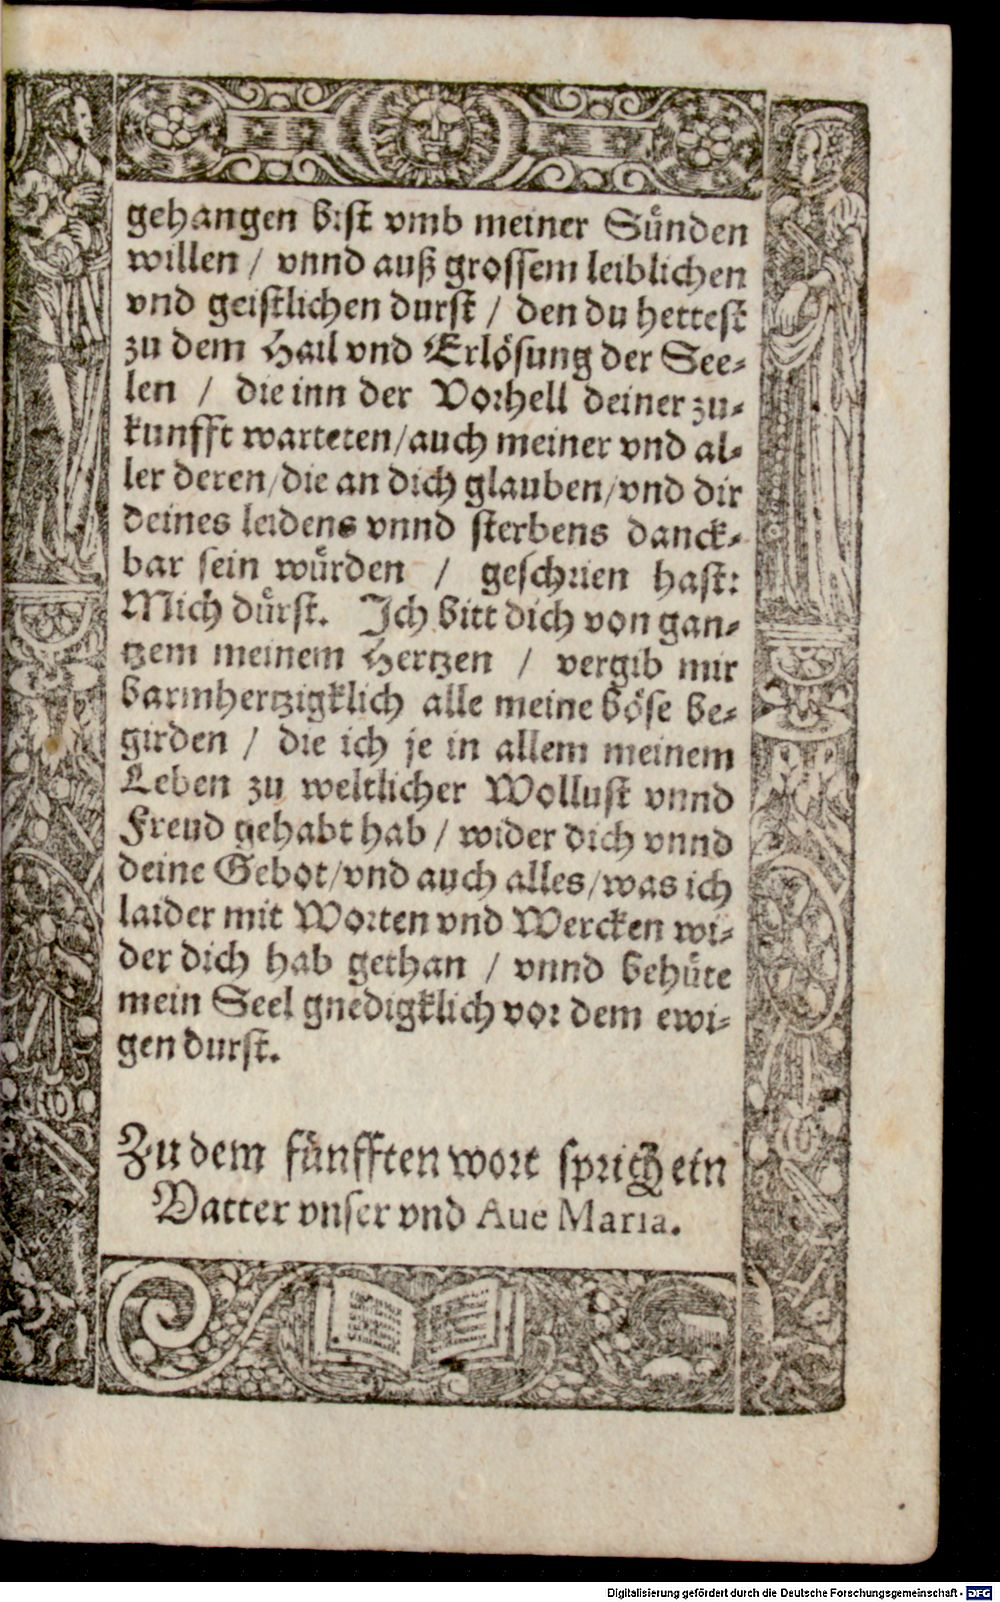 gehangen bist vmb meiner Sünden
willen / vnnd auß grossem leiblichen
vnd geistlichen durst / den du hettest
zu dem Hail vnd Erlösung der See-
len / die inn der Vorhell deiner zu-
kunfft warteten/auch meiner vnd al-
ler deren/die an dich glauben/vnd dir
deines leidens vnnd sterbens danck-
bar sein würden / geschrien hast:
Mich dürst. Ich bitt dich von gan-
tzem meinem Hertzen / vergib mir
barmhertzigklich alle meine böse be-
girden / die ich je in allem meinem
Leben zu weltlicher Wollust vnnd
Freud gehabt hab / wider dich vnnd
deine Gebot/vnd auch alles/was ich
laider mit Worten vnd Wercken wi-
der dich hab gethan / vnnd behüte
mein Seel gnedigklich vor dem ewi-
gen durst.
Zu dem fünfften wort sprich ein
Vatter vnser vnd Aue Maria.
Digitalisierung gefördert durch die Deutsche Forschungsgemeinschaft - DFG